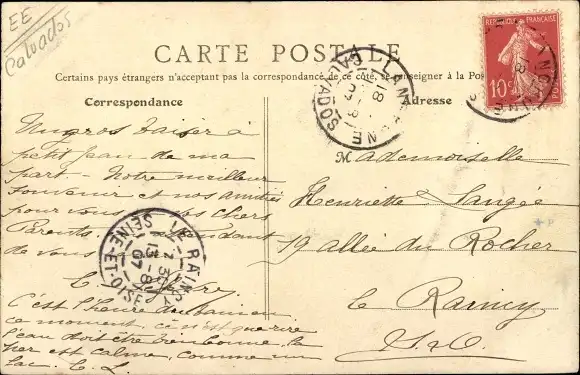 EE
Calvados
CARTE POSTALE
Certains pays étrangers n'acceptant pas la correspondance de ce côté, se renseigner à la Pos
Correspondance
Adresse
RÉPUBLIQUE FRANÇAISE
10c
LANGRUNE
CALVADOS
18
Un gros baiser à
petit Jean de ma
part - Notre meilleur
souvenir et nos amitiés
pour vous nos chers
Parents.
de vous
C'est l'heure du bain en
ce moment ce n'est que rire
l'eau doit être bien bonne, la
mer est calme, comme un
lac. C. L.
LE RAINCY
13 - 8
07
SEINE-ET-OISE
Mademoiselle
Henriette
19 allée du Rocher
le Raincy
S. & O.